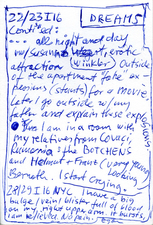 22/23 I 16 DREAMS
Continued:
... all night and day
w/ Susanna erotic
attraction. (winkler) Outside
of the apartment "fake" ex-
plosions (stunts) for a movie.
Later I go outside w/ my
father and explain those explosions
Thus I am in a room with
my relatives from Covaci,
Romania: the BOTCHENS
and Helmut + Franz (very young looking)
Bernath. I start crying.
23/24 I 16 NYC I have a big
bulge / vein / blister full of blood
on my right upper arm. It bursts,
I am relieved. No pain.